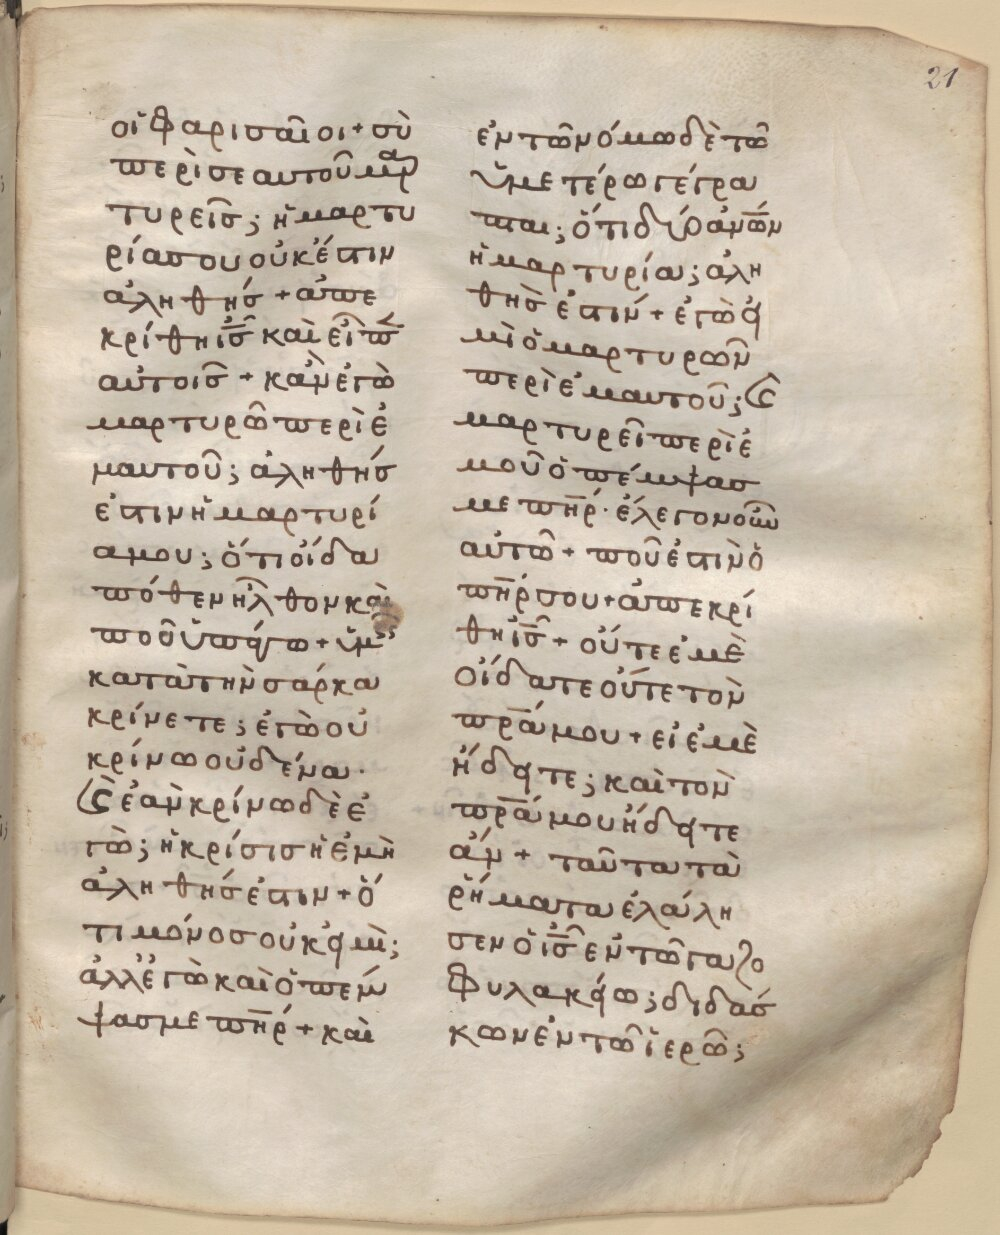 21
οἱ Φαρισαῖοι + σὺ
περὶ σεαυτοῦ μαρ
τυρεῖς; ἡ μαρτυ
ρία σου οὐκ ἔστιν
ἀληθής + ἀπε
κρίθη ις καὶ εἶπεν
αὐτοῖς + κἂν ἐγὼ
μαρτυρῶ περὶ ἐ
μαυτοῦ; ἀληθής
ἐστιν ἡ μαρτυρί
α μου; ὅτι οἶδα
πόθεν ἦλθον καὶ
ποῦ ὑπάγω + ὑμεῖς
κατὰ τὴν σάρκα
κρίνετε; ἐγὼ οὐ
κρίνω οὐδένα·
καὶ ἐὰν κρίνω δὲ ἐ
γὼ; ἡ κρίσις ἡ ἐμὴ
ἀληθής ἐστιν + ὅ
τι μόνος οὐκ εἰμὶ;
ἀλλ' ἐγὼ καὶ ὁ πέμ
ψας με πηρ + καὶ
ἐν τῶ νόμω δὲ τῶ
ὑμετέρω γέγρα
πται; ὅτι δύο ἀνων
ἡ μαρτυρία; ἀλη
θὴς ἐστιν + ἐγὼ εἰ
μὶ ὁ μαρτυρῶν
περὶ ἐμαυτοῦ; καὶ
μαρτυρεῖ περὶ ἐ
μοῦ ὁ πέμψας
με πηρ· ἔλεγον οὖν
αὐτῶ + ποῦ ἐστιν ὁ
πηρ σου + ἀπεκρί
θη ις + οὔτε ἐμὲ
οἴδατε οὔτε τὸν
πρα μου + εἰ ἐμὲ
ἤδειτε; καὶ τὸν
πρα μου ἤδειτε
ἄν + ταῦτα τὰ
ῥήματα ἐλάλη
σεν ὁ ις ἐν τῶ γαζο
Φυλακείω; διδάσ
κων ἐν τῶ ἱερῶ;